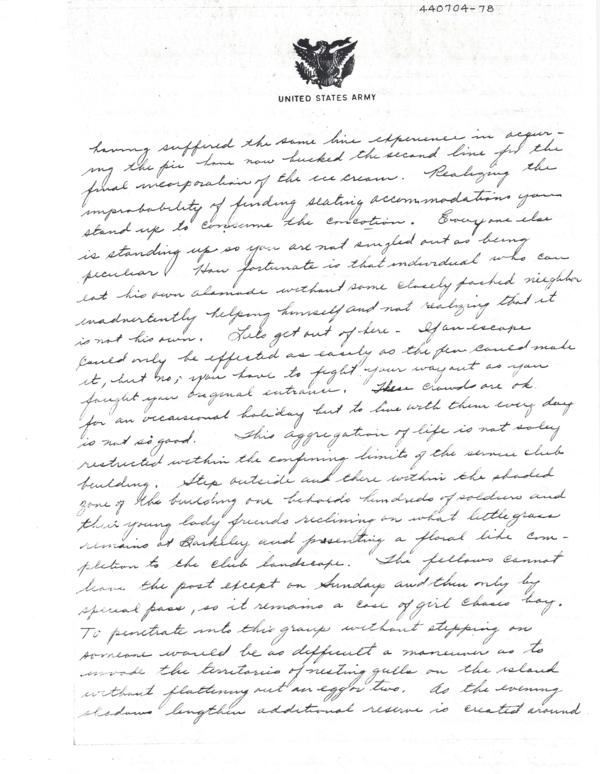 440704-78
UNITED STATES ARMY
having suffered the same line experience in acquir-
ing the pie have now bucked the second line for the
final incorporation of the ice cream. Realizing the
improbability of finding seating accommodations you
stand up to consume the concotion. Everyone else
is standing up so you are not singled out as being
peculiar. How fortunate is that individual who can
eat his own alamode without some closely packed nieghbor
inadvertently helping himself and not realizing that it
is not his own. Lets get out of here - If an escape
could only be effected as easily as the pen could make
it, but no; you have to fight your way out as you
fought your original entrance. These crowds are ok
for an occasional holiday but to live with them every day
is not so good. This aggregation of life is not soley
restricted within the confining limits of the service club
building. Step outside and there within the shaded
zone of the building one beholds hundreds of soldiers and
their young lady friends reclining on what little grass
remains at Barkeley and presenting a floral like com-
pletion to the club landscape. The fellows cannot
leave the post except on Sundays and then only by
special pass, so it remains a case of girl chases boy.
To penetrate into this group without stepping on
someone would be as difficult a maneuver as to
invade the territories of nesting gulls on the island
without flattening out an egg or two. As the evening
shadows lengthen additional reserve is created around